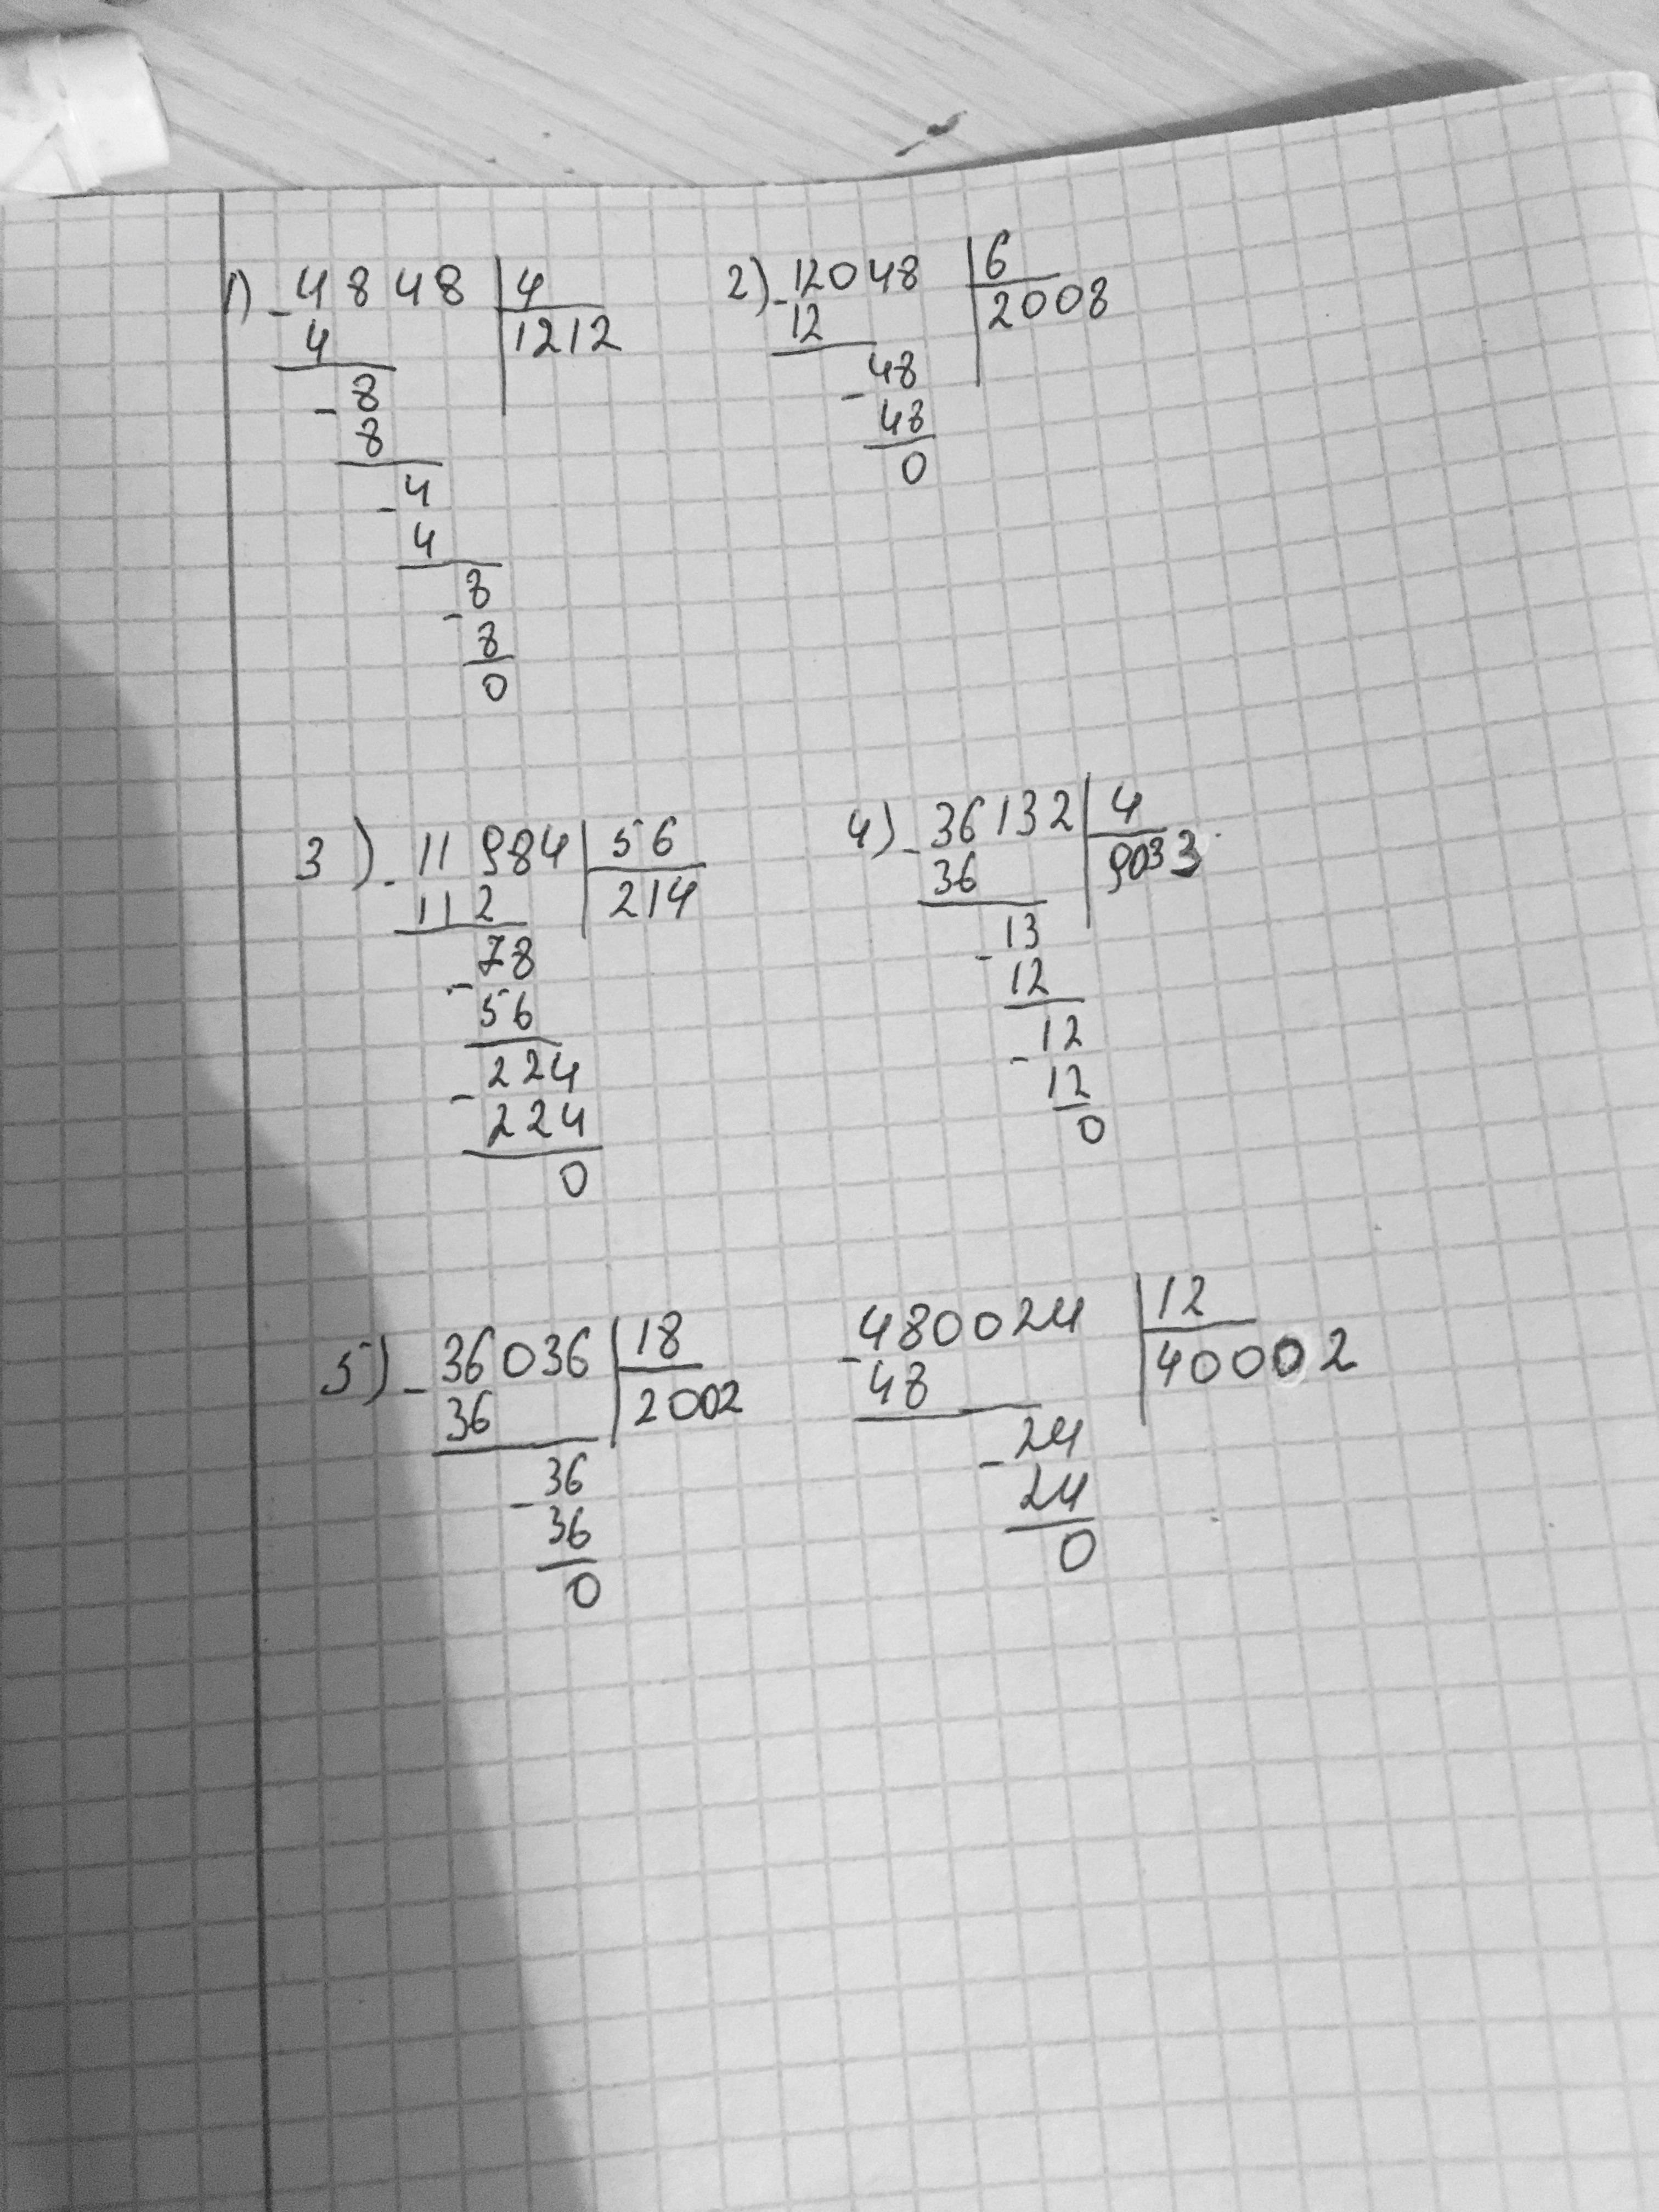 1) - 4848 | 4
4 | 1212
- 8
8
- 4
4
- 8
8
0
2) - 12048 | 6
12 | 2008
- 48
48
0
3) - 11984 | 56
112 | 214
- 78
56
- 224
224
0
4) - 36132 | 4
36 | 9033
- 13
12
- 12
12
0
5) - 36036 | 18
36 | 2002
- 36
36
0
- 480024 | 12
48 | 40002
- 24
24
0